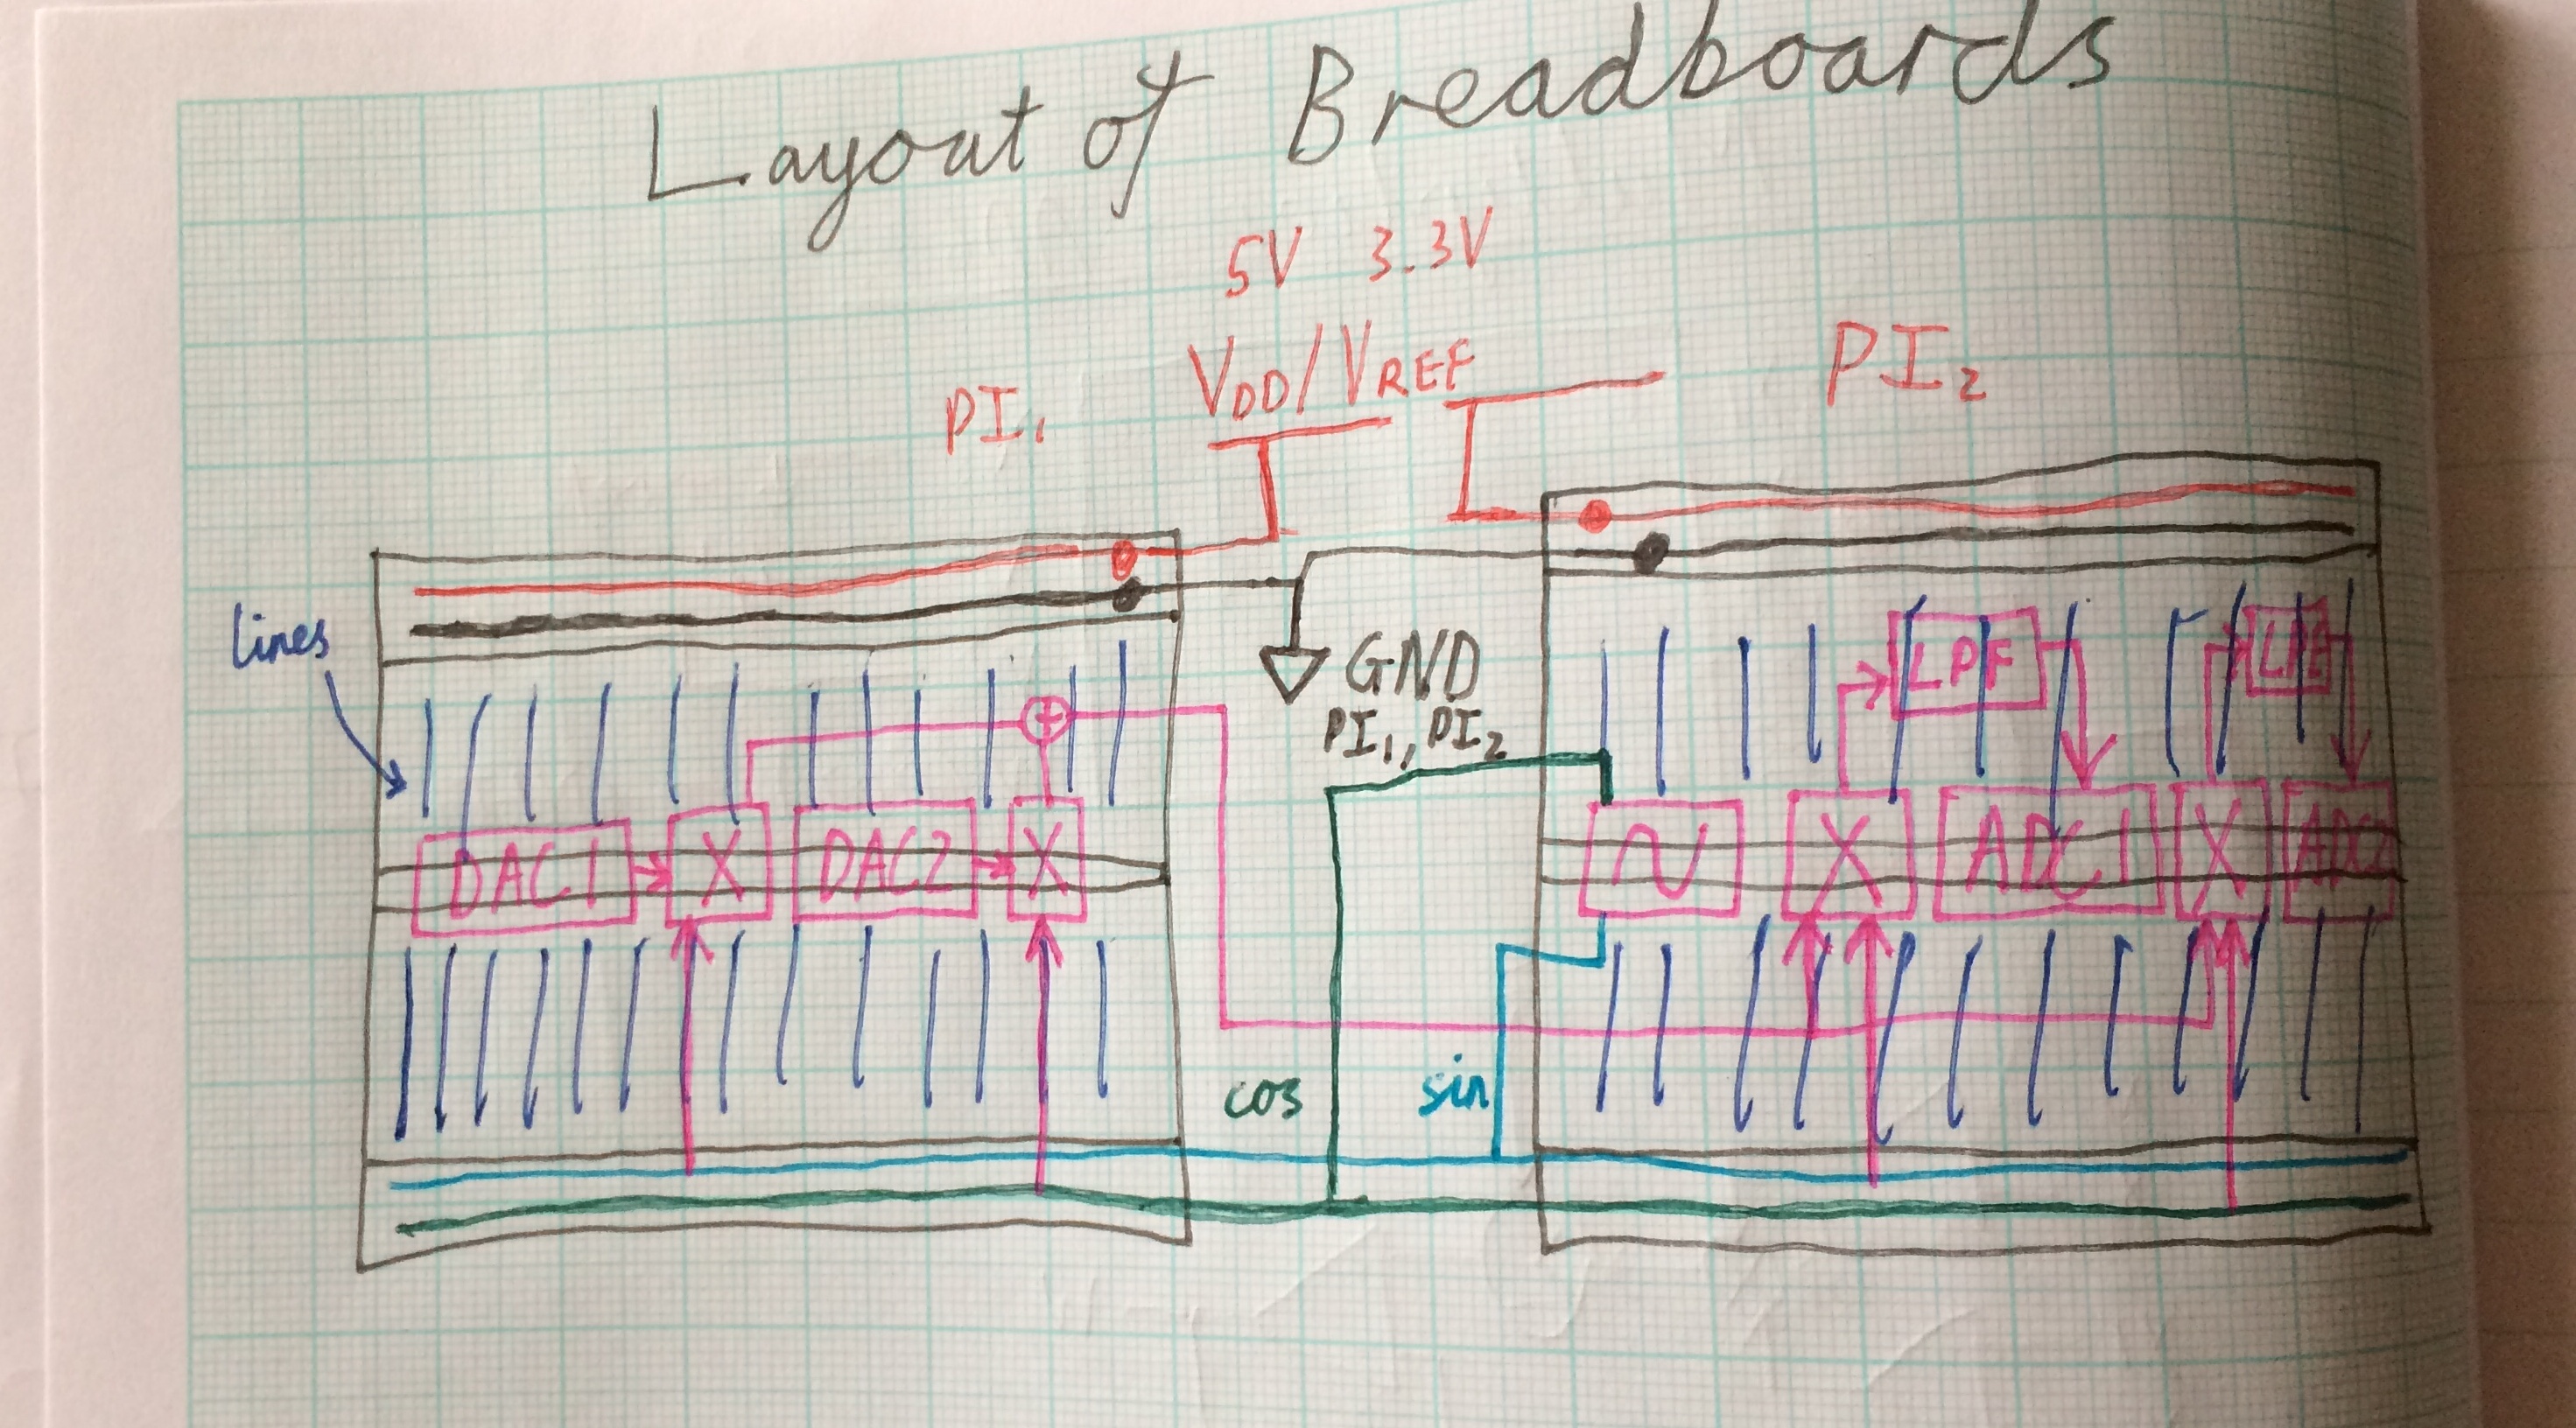 Layout of Breadboards
5V 3.3V
PI₁ VDD/VREF PI₂
lines
GND
PI₁, PI₂
+
LPF
DAC1 X DAC2 X
~ X ADC1 X ADC2
cos sin